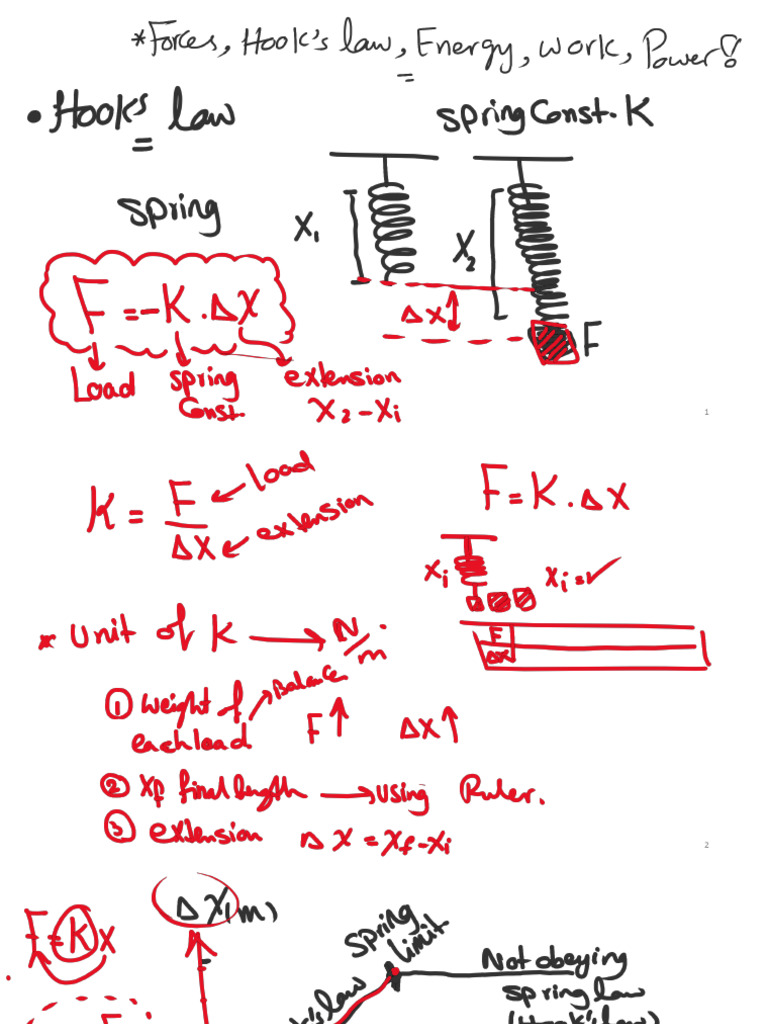 *Forces, Hook's law, Energy, work, Power!
• Hook's law
spring Const. K
spring
X₁
X₂
F = -K . Δx
Δx
F
Load
spring Const.
extension
X₂ - Xi
K = F / Δx
Load
extension
F = K . Δx
Xi
Xi = ✓
1
* Unit of K → N/m.
F
Δx
① weight of each load → Balance
F↑ Δx↑
② Xf final length → using Ruler.
③ extension Δx = Xf - Xi
2
F = K x
Δx (m)
spring limit
Not obeying
spring law
(Hook's law)
k's law